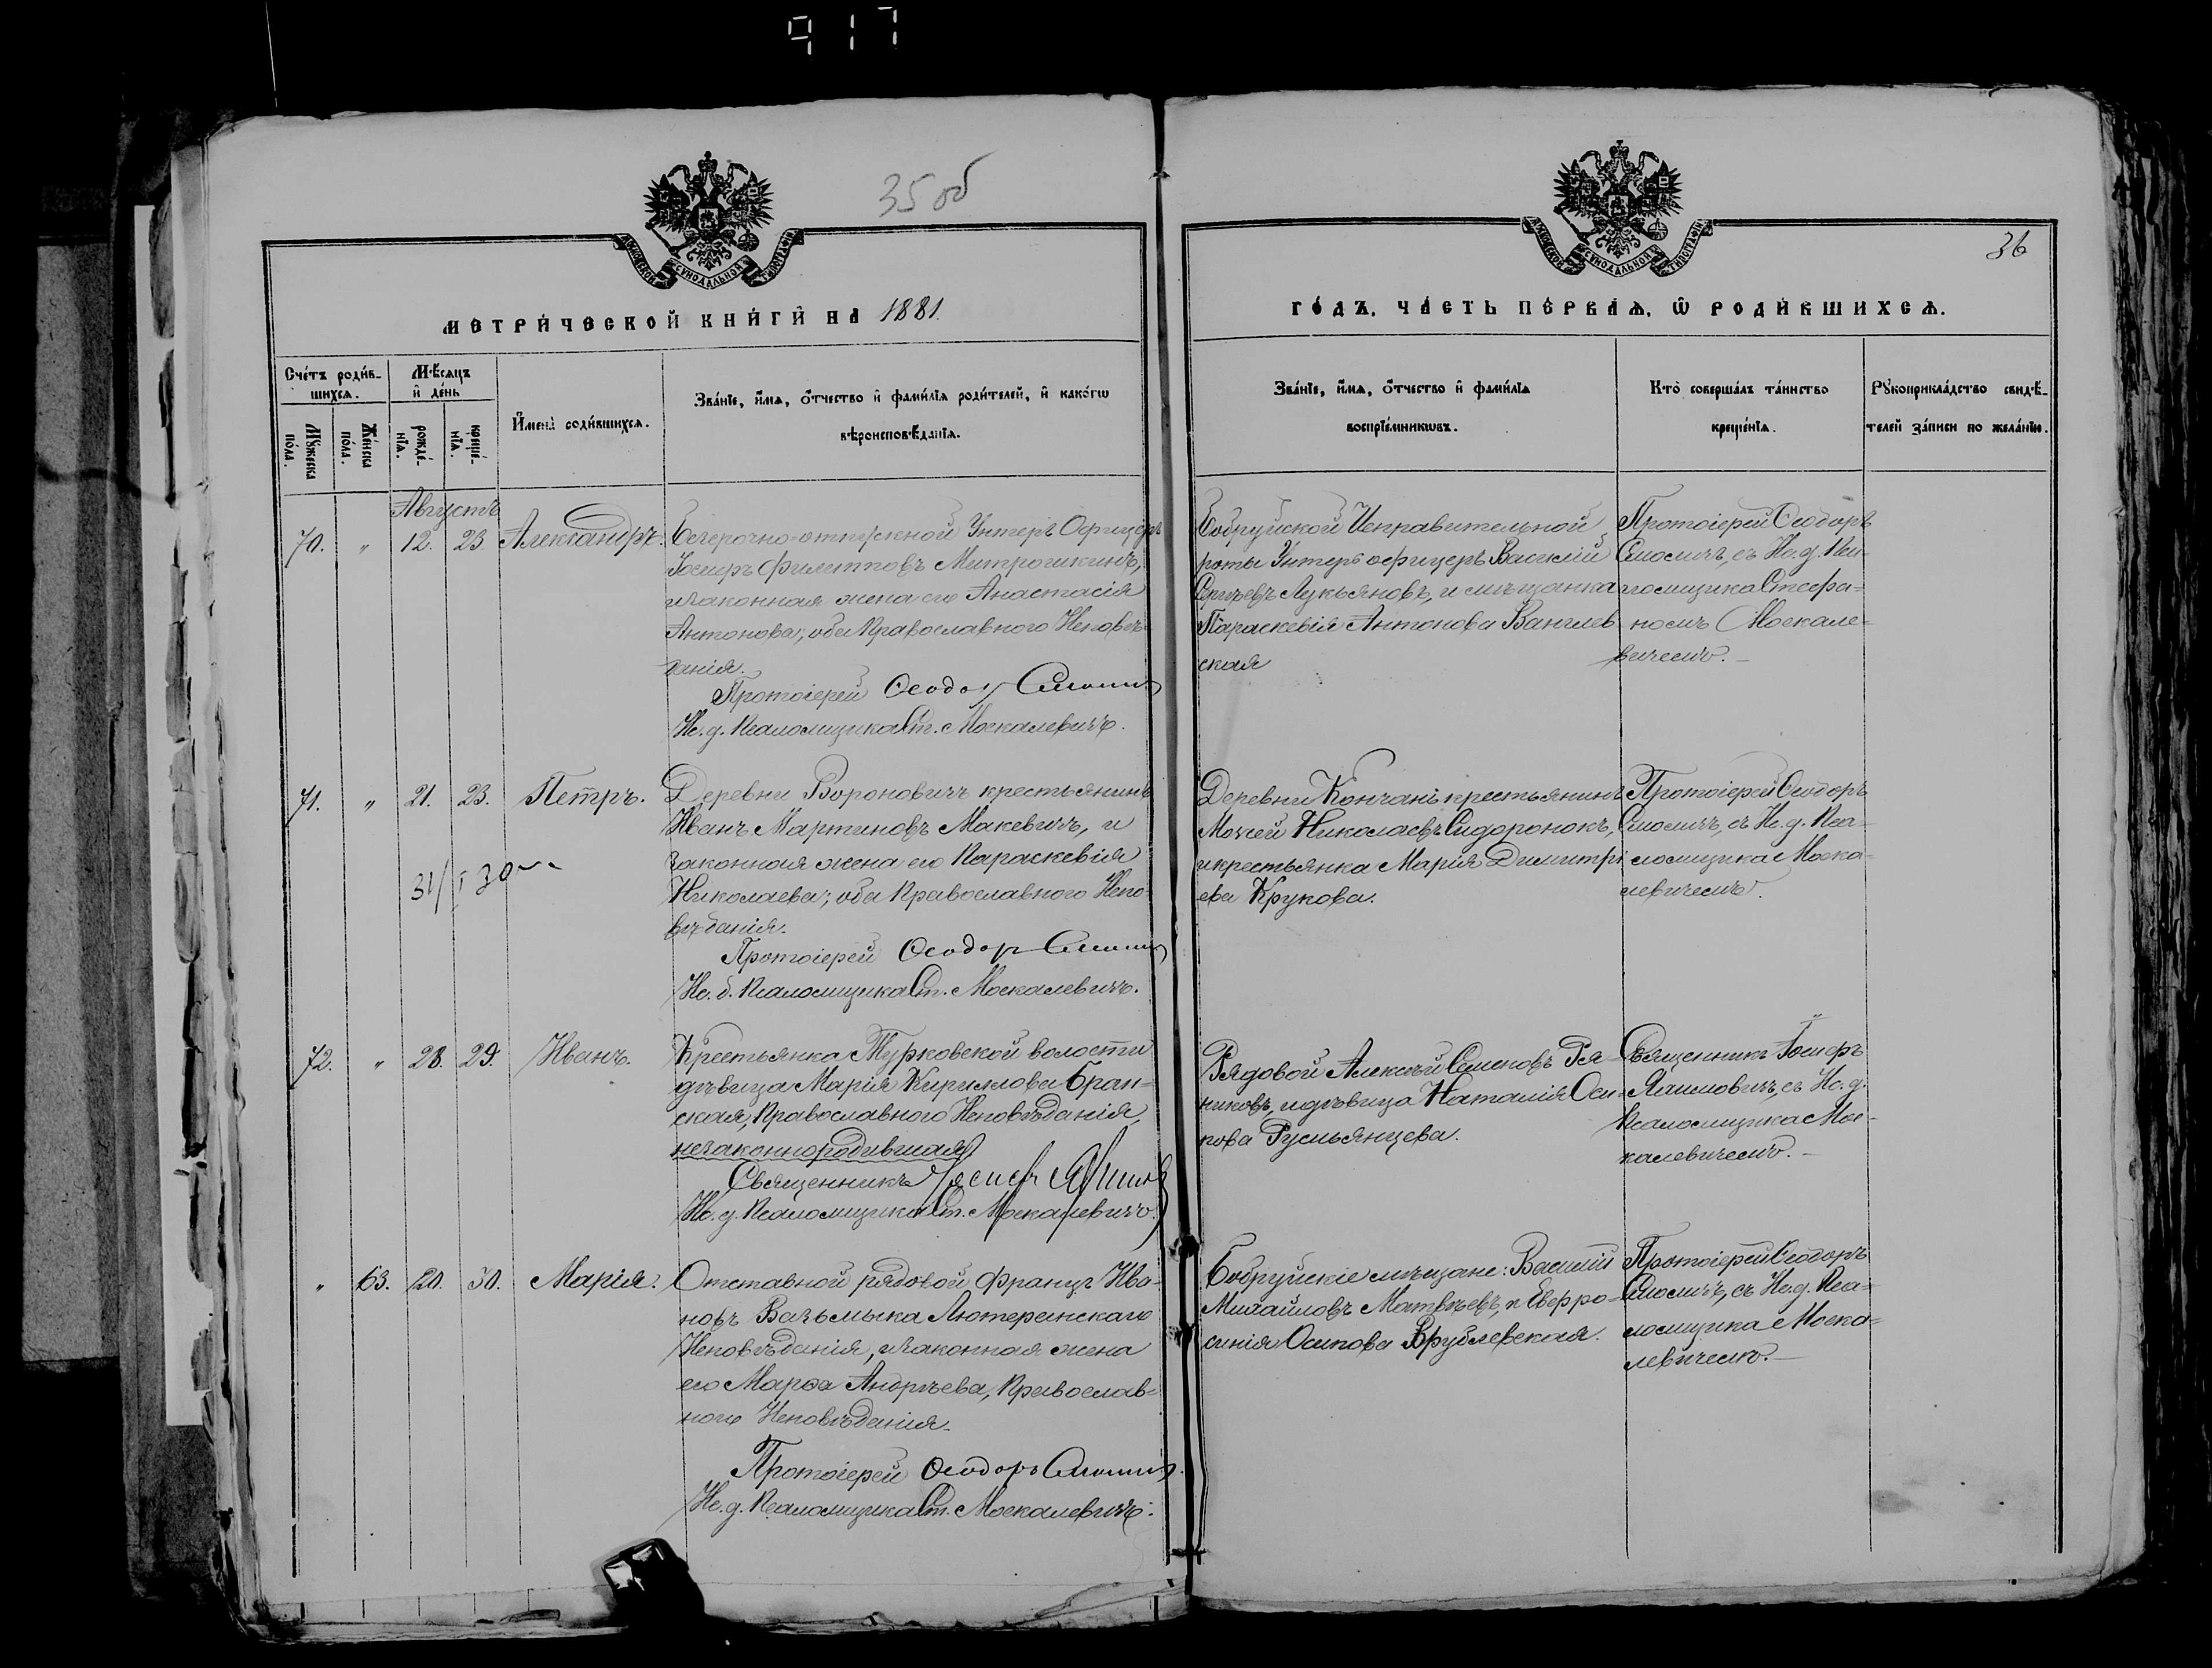 917
35 об
36
МОСКОВСКОЙ СѴНОДАЛЬНОЙ ТИПОГРАФІИ
МОСКОВСКОЙ СѴНОДАЛЬНОЙ ТИПОГРАФІИ
МЕТРИ́ЧЕСКОЙ КНИ́ГИ НА 1881.
ГО́ДЪ. ЧА́СТЬ ПЕ́РВАЯ, Ѡ РОДИ́ВШИХСЯ.
Сче́тъ роди́в-
шихся.
Му́жеска по́ла.
Же́нска по́ла.
Мѣ́сяцъ
и де́нь
рожде́-нїя.
креще́-нїя.
И́мена роди́вшихся.
Зва́нїе, и́мя, о́тчество и фами́лїя роди́телей, и како́гѡ
вѣроисповѣ́данїя.
Зва́нїе, и́мя, о́тчество и фами́лїя
воспрїе́мникѡвъ.
Кто̀ соверша́лъ та́инство
креще́нїя.
Рꙋкоприкла́дство свидѣ́-
телей за́писи по жела́нїю.
Августъ
70. " 12. 23. Александръ.
Безсрочно-отпускной Унтеръ Офицеръ
Іосифъ Филипповъ Митрошкинъ,
и законная жена его Анастасія
Антонова; оба Православнаго Исповѣ-
данія.
Протоіерей Ѳеодоръ Смоличъ
Ис. д. Псаломщика Ст. Москалевичъ.
Бобруйской Исправительной
роты Унтеръ офицеръ Василій
Сергѣевъ Лукьяновъ, и мѣщанка
Параскевія Антонова
ская
Протоіерей Ѳеодоръ
Смоличъ, съ Ис. д. Пса-
ломщика Стефа-
номъ Москале-
вичемъ.
71. " 21. 23. Петръ.
31/I 30
Деревни Вороновичъ крестьянинъ
Иванъ Мартиновъ Макевичъ, и
законная жена его Параскевія
Николаева; оба Православнаго Испо-
вѣданія.
Протоіерей Ѳеодоръ Смоличъ
Ис. д. Псаломщика Ст. Москалевичъ.
Деревни Кончанъ крестьянинъ
Моисей Николаевъ Сидоронокъ,
и крестьянка Марія Димитрі
ева Крукова.
Протоіерей Ѳеодоръ
Смоличъ, съ Ис. д. Пса-
ломщика Моска-
левичемъ.
72. " 28. 29. Иванъ.
Крестьянка Турковской волости
дѣвица Марія Кириллова Бран-
ская, Православнаго Исповѣданія,
незаконнородившая
Священникъ Іосифъ
Ис. д. Псаломщика Ст. Москалевичъ.
Рядовой Алексѣй Семеновъ Ря-
никовъ, и дѣвица Наталія Оси-
пова Русьянцева.
Священникъ Іосифъ
съ Ис. д.
Псаломщика Мос-
калевичемъ.
" 63. 20. 30. Марія.
Отставной рядовой Францъ Ива-
новъ Вазьмыка Лютеранскаго
Исповѣданія, и законная жена
его Марѳа Андреева, Православ-
наго Исповѣданія.
Протоіерей Ѳеодоръ Смоличъ.
Ис. д. Псаломщика Ст. Москалевичъ.
Бобруйскіе мѣщане: Василій
Михайловъ Матвѣевъ, и Евфро-
синія Осипова Врублевская.
Протоіерей Ѳеодоръ
Смоличъ, съ Ис. д. Пса-
ломщика Моска-
левичемъ.